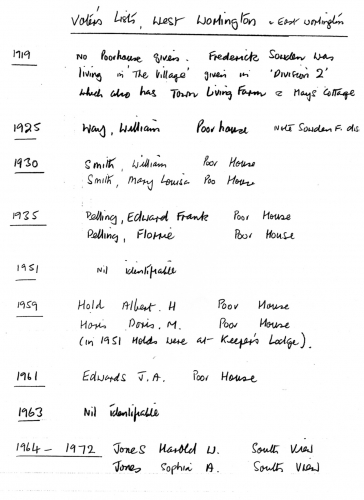 Voters Lists, West Worlington & East Worlington
1919 No Poorhouse given. Frederick Sowden was
living in 'The Village' given in 'Division 2'
which also has Town Living Farm & Mays Cottage
1925 Way, William Poorhouse Note Sowden F. dis
1930 Smith, William Poor House
Smith, Mary Louisa Poo House
1935 Pelling, Edward Frank Poor House
Pelling, Florrie Poor House
1951 Nil identifiable
1959 Hold Albert. H Poor House
Doris. M. Poor House
(in 1951 Holds were at Keeper's Lodge).
1961 Edwards J.A. Poor House
1963 Nil identifiable
1964 - 1972 Jones Harold W. South View
Jones Sophia A. South View